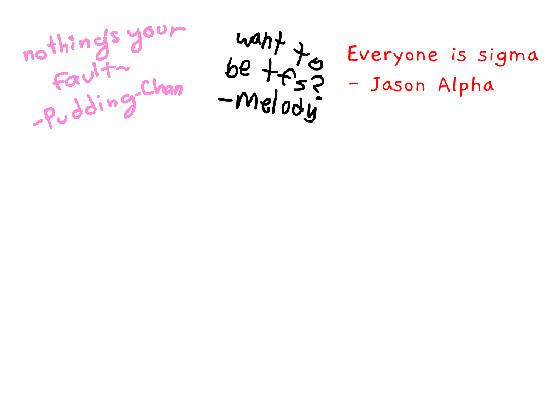 nothing's your
fault~
-Pudding-Chan
want to
be tfs?
-Melody
Everyone is sigma
- Jason Alpha